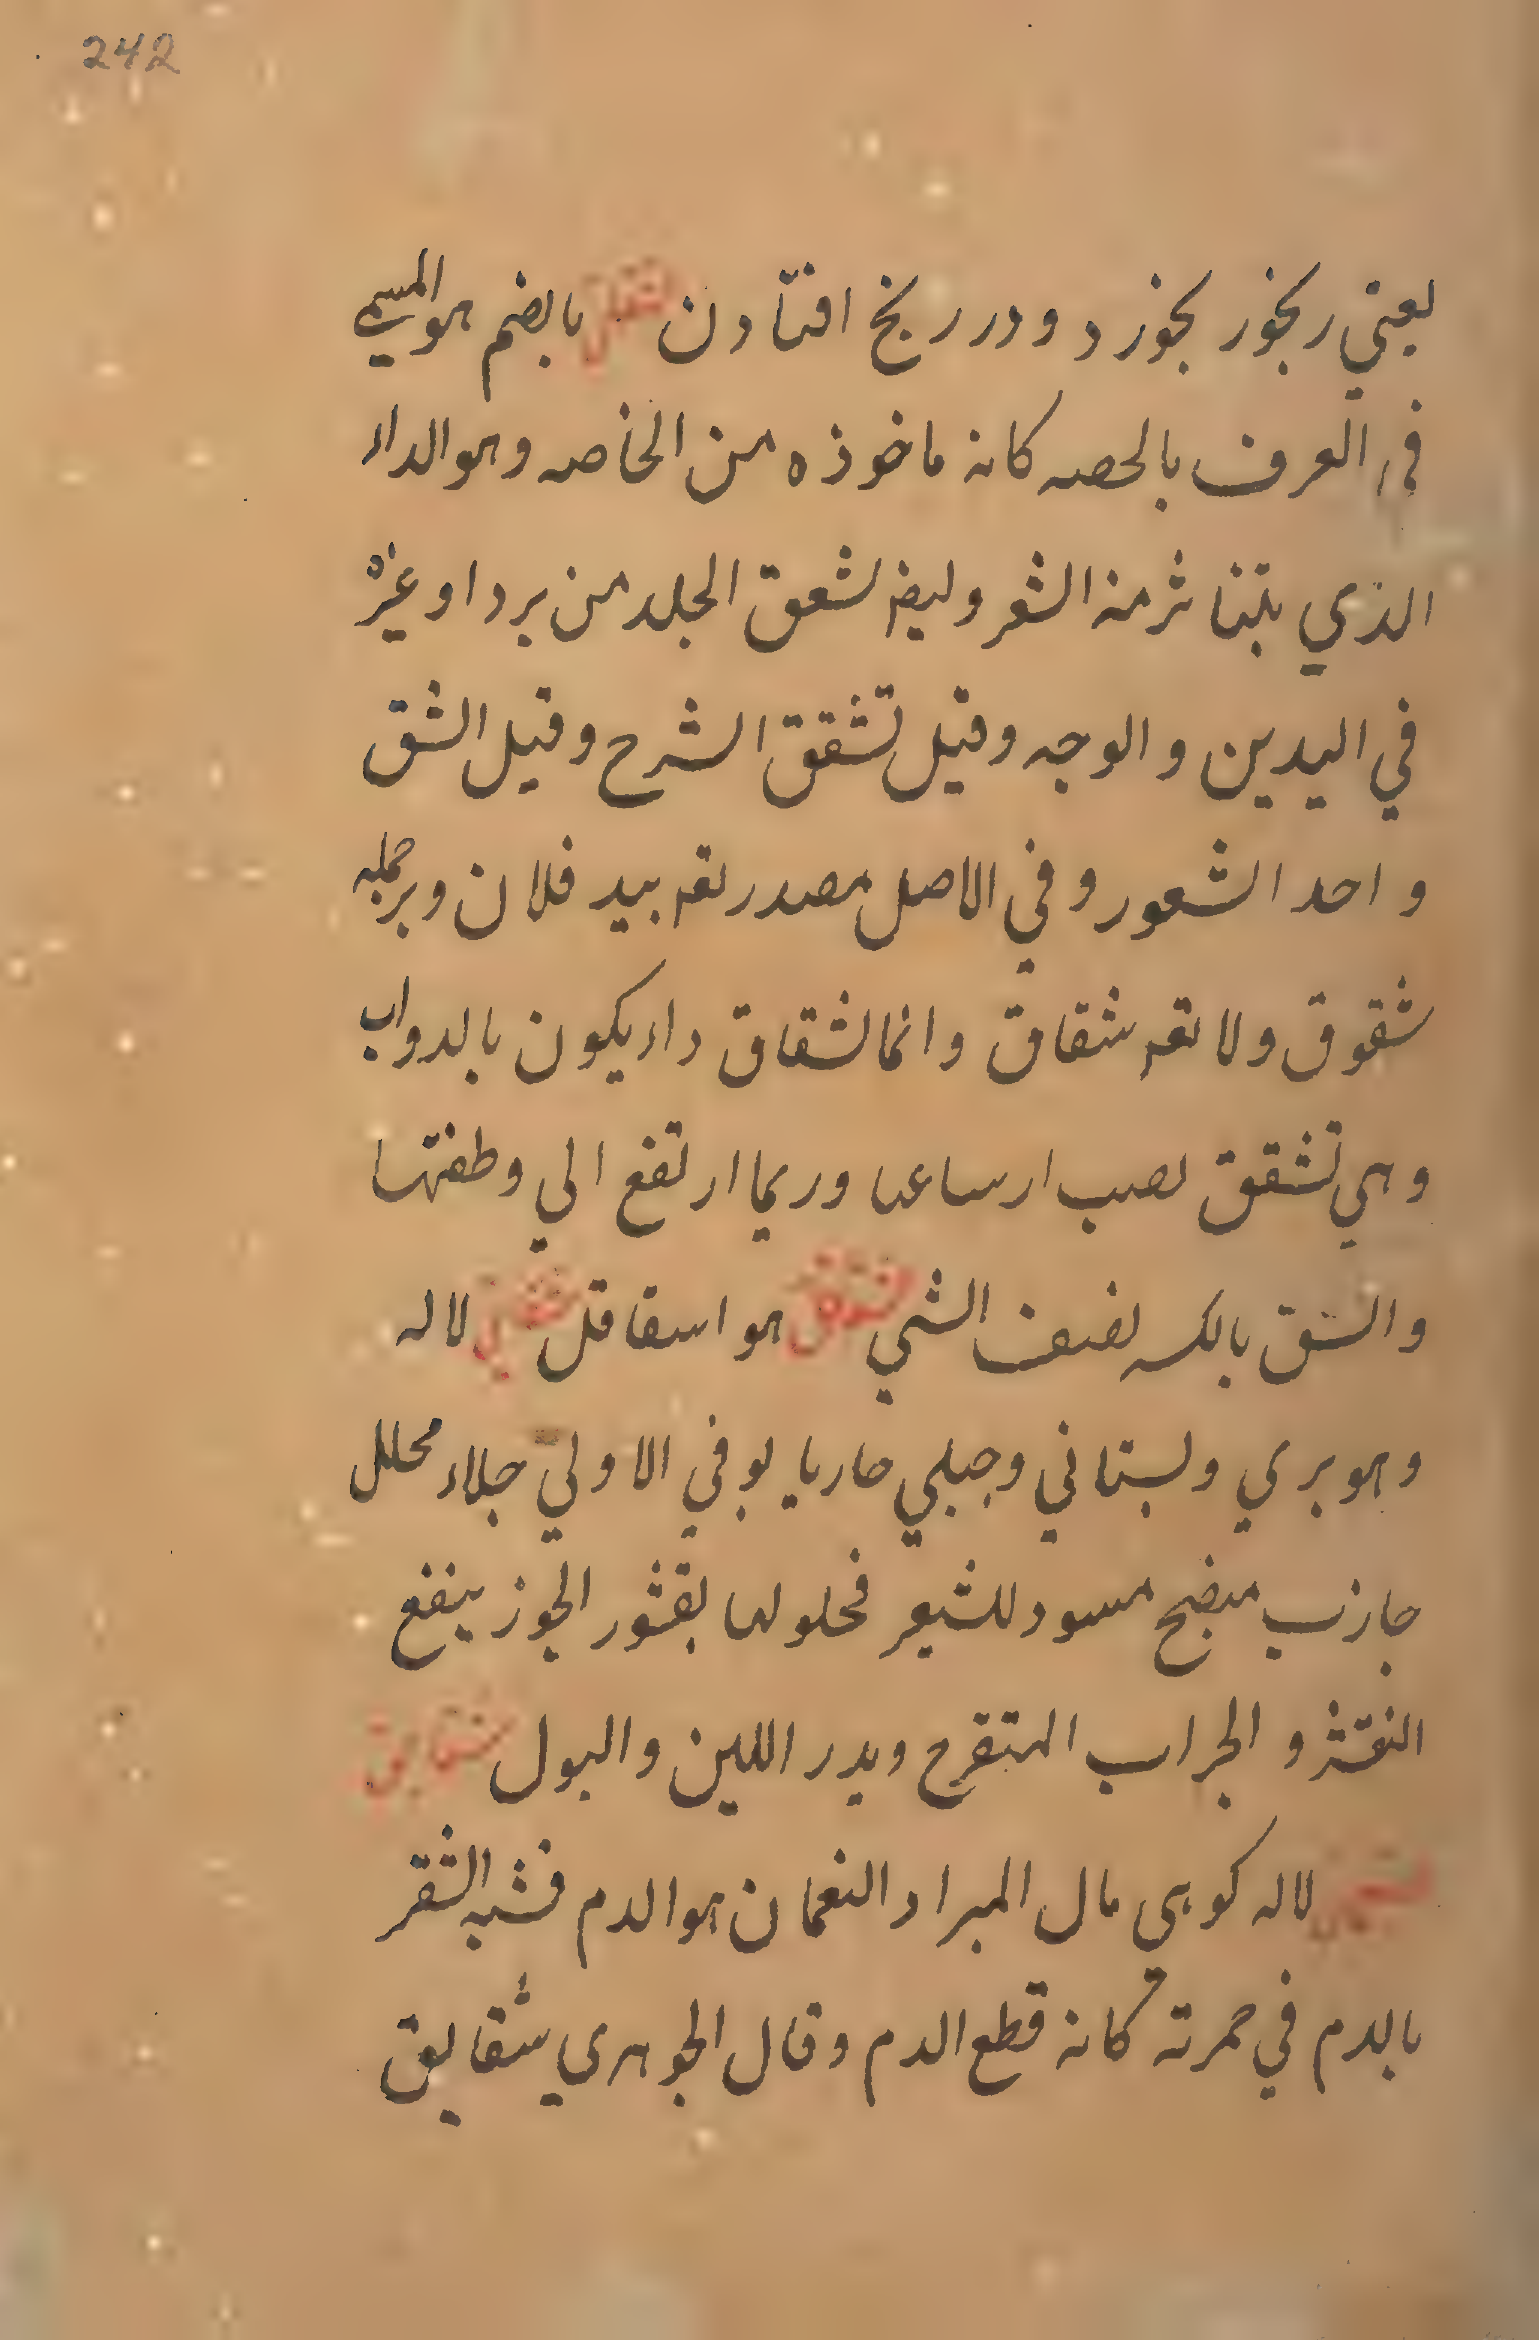 242
يعني رنجور بجوزد و در رنج افتادن شقفل بالضم هو المسمي
في العرف بالحصه كانه ماخوذه من الخاصه و هو الداء
الذي يتناثر منه الشعر وايضا لشعق الجلد من برد او غيره
في اليدين و الوجه وقيل تشقق الشرح وقيل الشق
واحد الشعور وفي الاصل مصدر لقم بيد فلان وبرجله
شقوق ولا لقم شقاق وانما لشقاق داء يكون بالدواب
وهي تشقق لصيب ارساعها وربما ارتفع الي وطفتها
والشق بالكسر لضف الشي هو اسقاقل لاله
وهو بري و بستاني وجبلي حار يا بو في الاولي جلاء محلل
جازب منضج مسود للشعر فحلولها بقشور الجوز ينفع
التقشر و الجراب المتقرح ويدر اللبن والبول شقايق
لاله كوهي مال المبراد النعمان هو الدم فشبه الشقر
بالدم في حمرته كانه قطع الدم وقال الجوهري شقايق